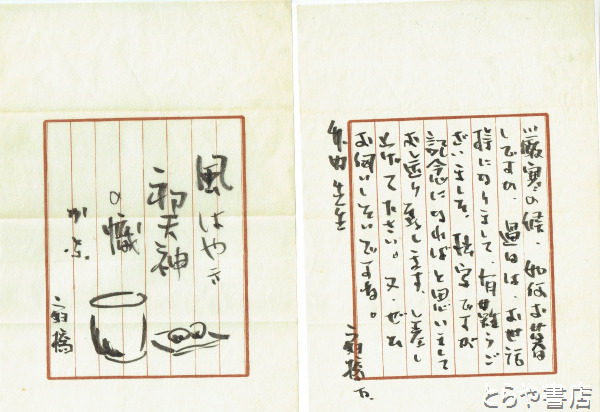 厳寒の候、如何お暮
しですか、過日は、お世話
様になりまして、有難うご
ざいました。拙字ですが
記念になればと思いまして
お送り致します、
下さい。又、ぜひ
お伺いしたいですね。
先生
風はやき
初天神
の幟
かな
橋
とらや書店